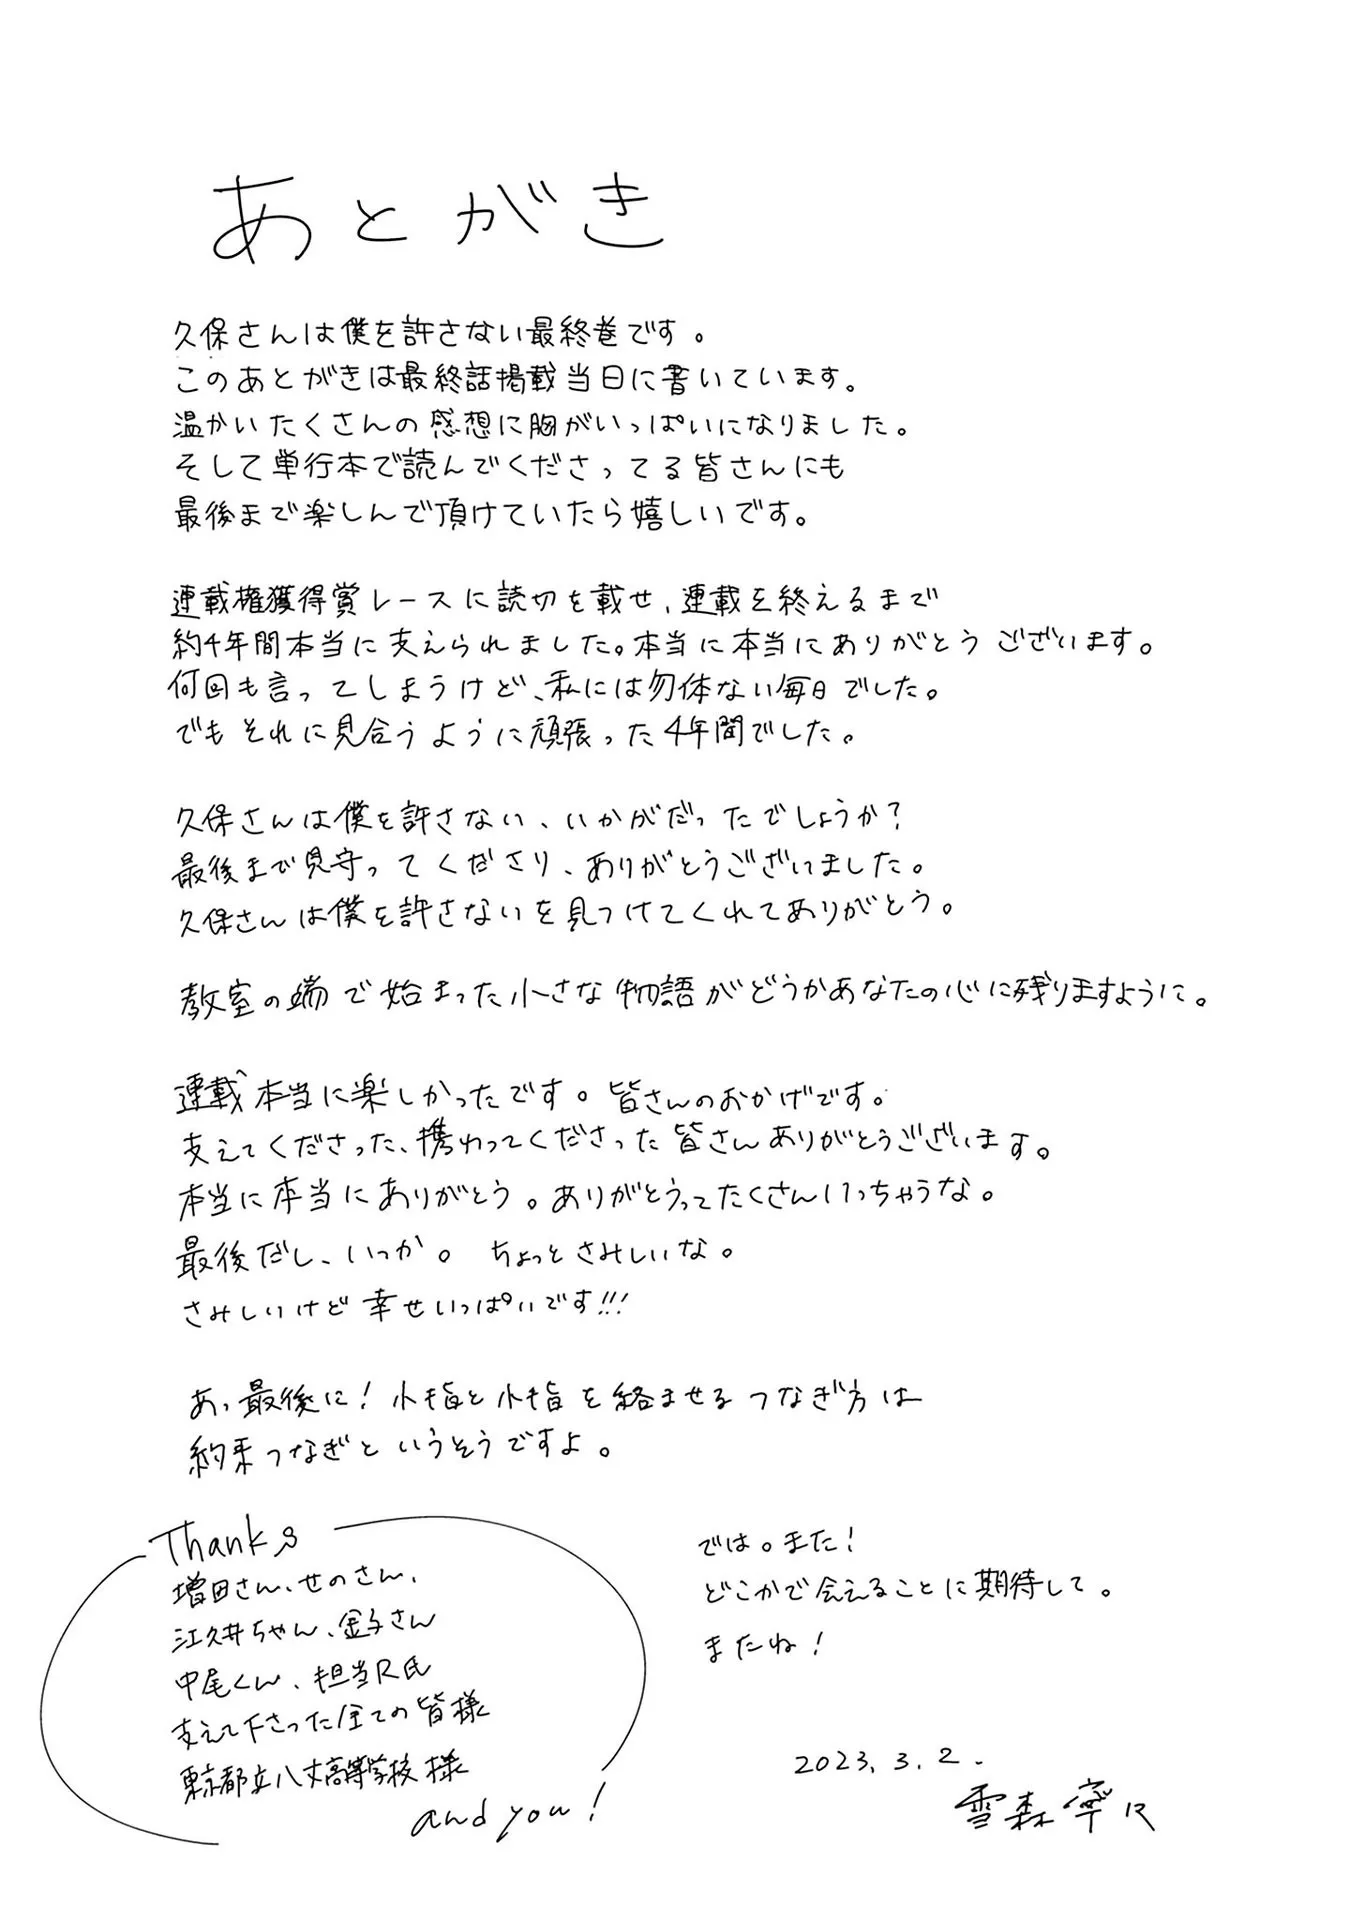 あとがき
久保さんは僕を許さない最終巻です。
このあとがきは最終話掲載当日に書いています。
温かいたくさんの感想に胸がいっぱいになりました。
そして単行本で読んでくださってる皆さんにも
最後まで楽しんで頂けていたら嬉しいです。
連載権獲得賞レースに読切を載せ、連載を終えるまで
約4年間本当に支えられました。本当に本当にありがとうございます。
何回も言ってしまうけど、私には勿体ない毎日でした。
でもそれに見合うように頑張った4年間でした。
久保さんは僕を許さない、いかがだったでしょうか?
最後まで見守ってくださり、ありがとうございました。
久保さんは僕を許さないを見つけてくれてありがとう。
教室の端で始まった小さな物語がどうかあなたの心に残りますように。
連載本当に楽しかったです。皆さんのおかげです。
支えてくださった、携わってくださった皆さんありがとうございます。
本当に本当にありがとう。ありがとうってたくさんいっちゃうな。
最後だし、いっか。 ちょっとさみしいな。
さみしいけど幸せいっぱいです!!!
あっ最後に!小指と小指を絡ませるつなぎ方は
約束つなぎというそうですよ。
Thanks
増田さん、せのさん、
江久井ちゃん、金子さん
中尾くん、担当R氏
支えて下さった全ての皆様
東京都立八丈高等学校様
and you!
では。また!
どこかで会えることに期待して。
またね!
2023.3.2.
雪森寧々